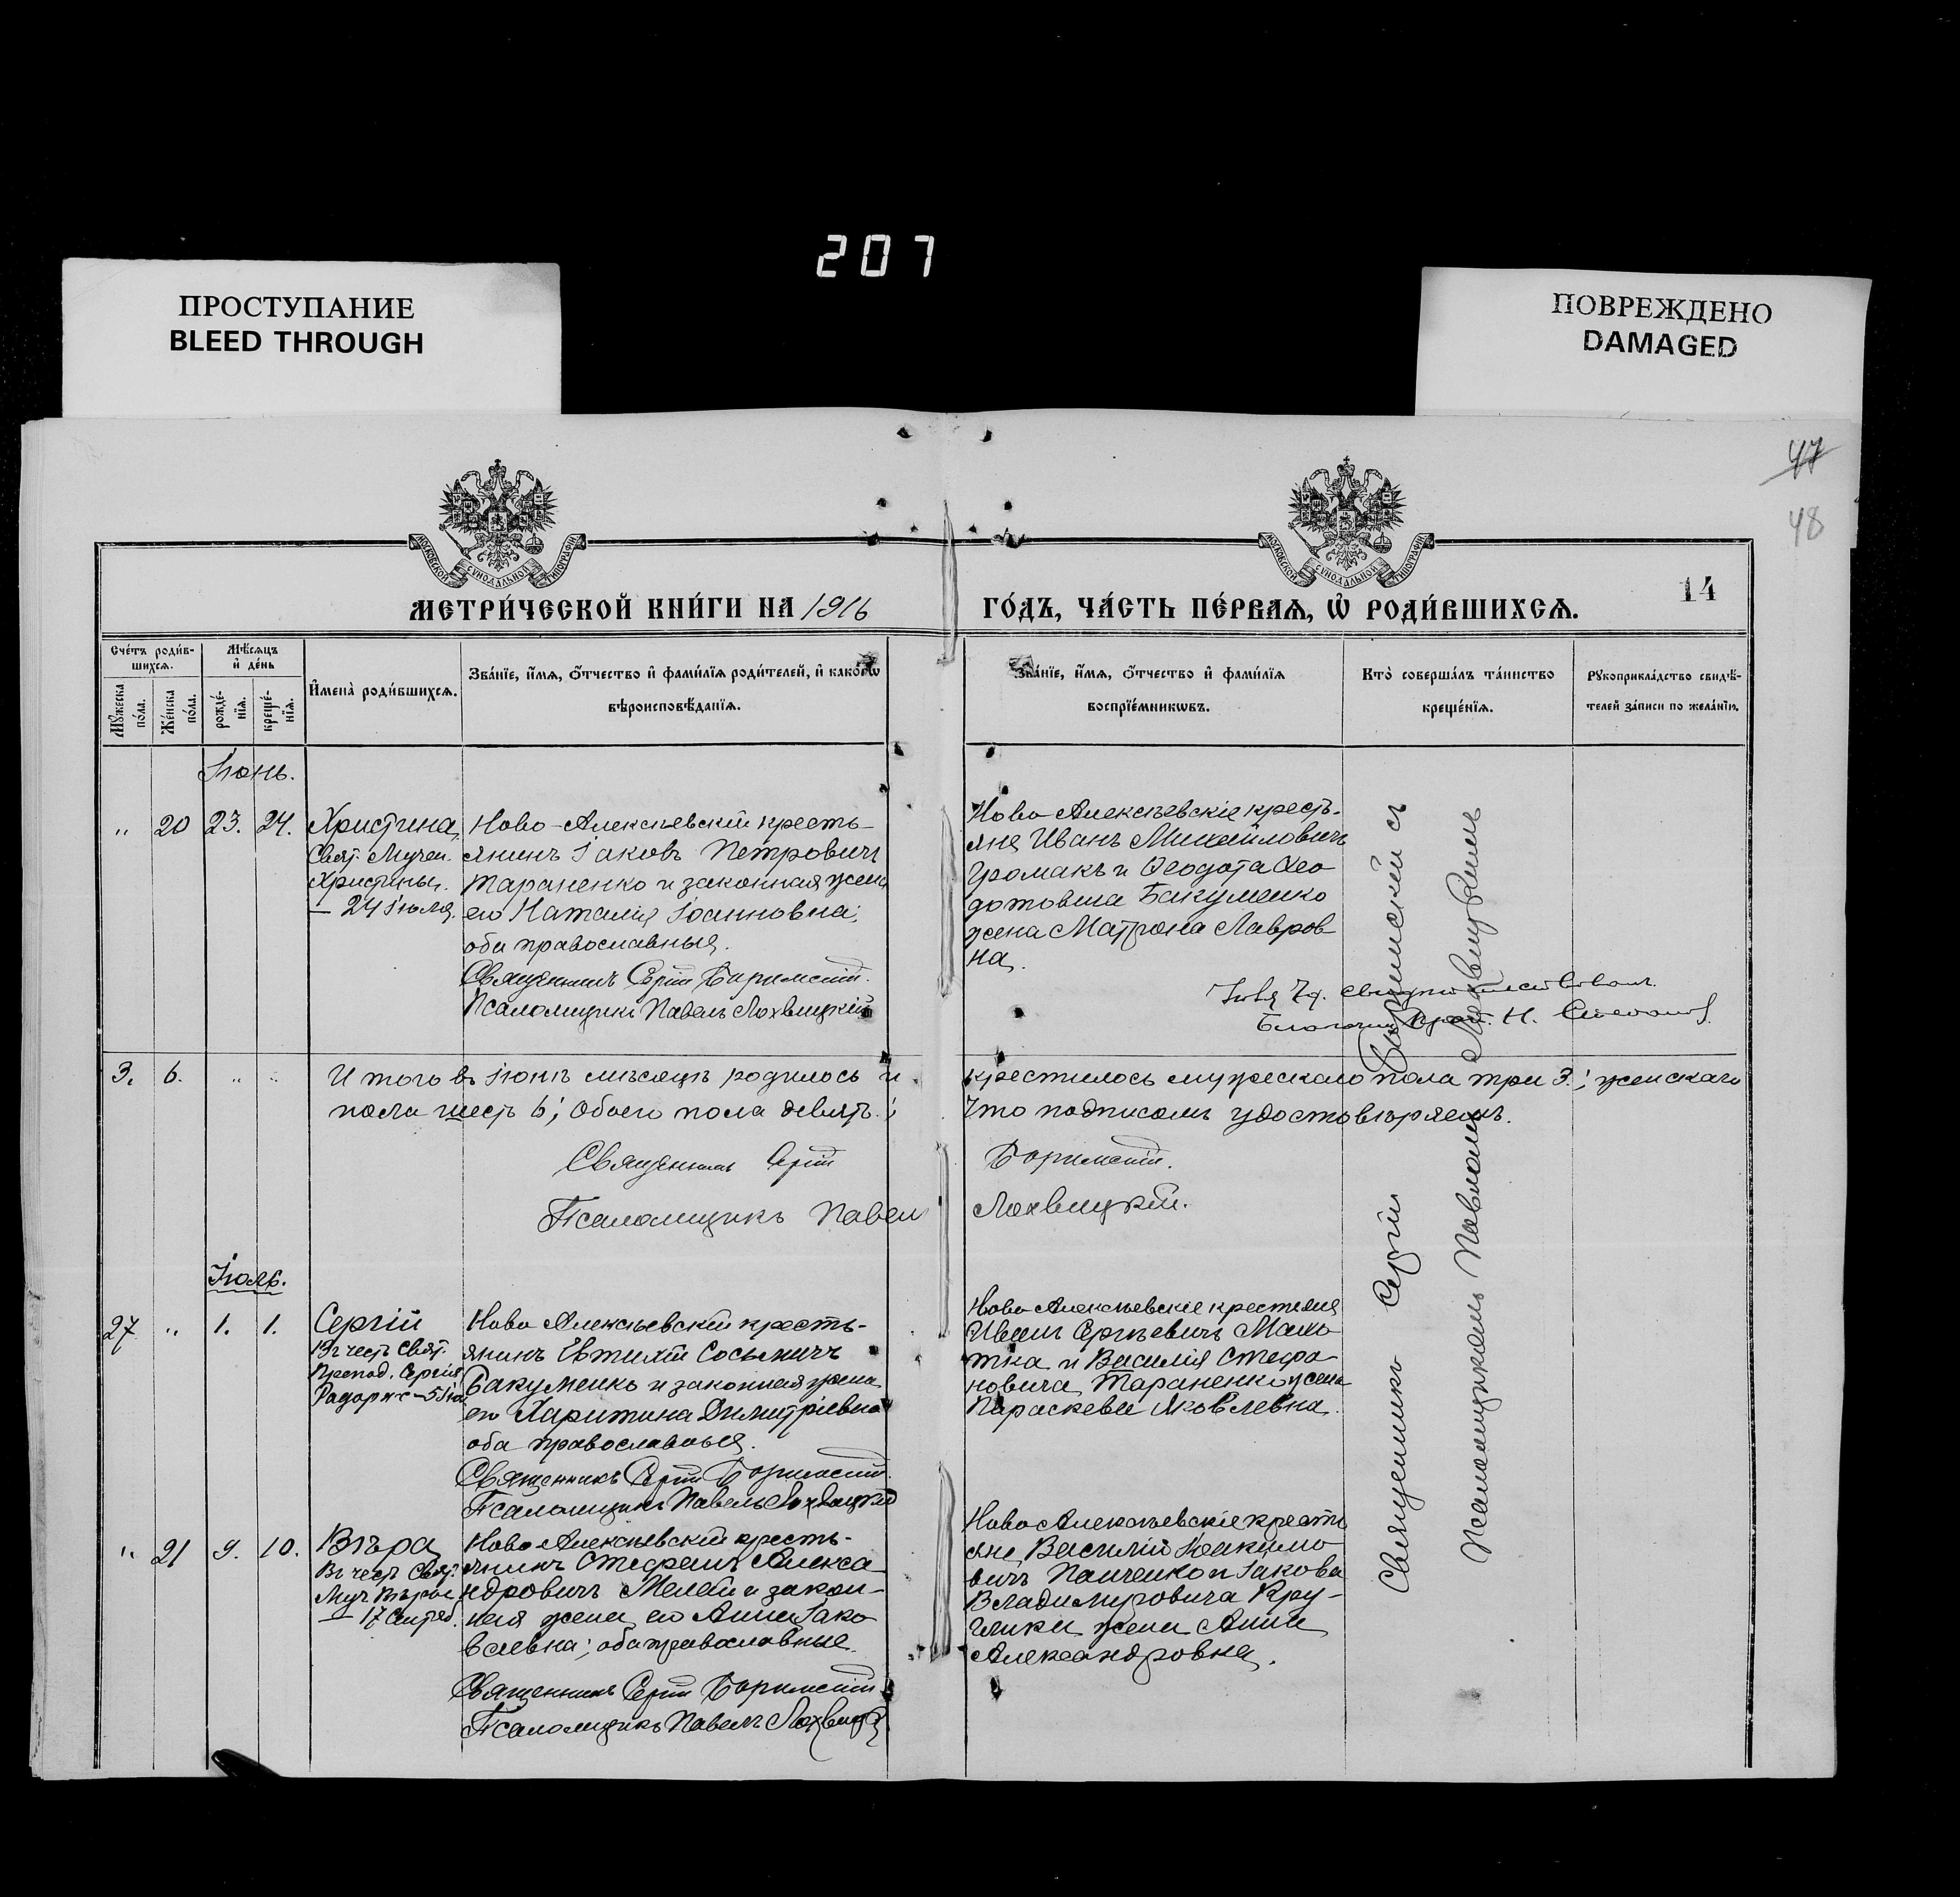 207
ПРОСТУПАНИЕ
BLEED THROUGH
ПОВРЕЖДЕНО
DAMAGED
47
48
МОСКОВСКОЙ СѴНОДАЛЬНОЙ ТИПОГРАФІИ
МОСКОВСКОЙ СѴНОДАЛЬНОЙ ТИПОГРАФІИ
МЕТРИ́ЧЕСКОЙ КНИ́ГИ НА 1916
ГО́ДЪ, ЧА́СТЬ ПЕ́РВАЯ, Ѡ РОДИ́ВШИХСЯ.
14
Сче́тъ роди́в-
шихся.
Мꙋ́жеска по́ла.
Же́нска по́ла.
Мѣ́сяцъ
и҆ де́нь
рожде́-
нїя.
креще́-
нїя.
И҆мена̀ роди́вшихся.
Зва́нїе, и҆́мя, ѻ҆́тчество и҆ фами́лїя роди́телей, и҆ како́гѡ
вѣроисповѣ́данїя.
Зва́нїе, и҆́мя, ѻ҆́тчество и҆ фами́лїя
воспрїе́мникωвъ.
Кто̀ соверша́лъ та́инство
креще́нїя.
Рꙋкоприкла́дство свидѣ́-
телей за́писи по жела́нїю.
Іюнь.
" 20 23. 24. Христина,
Свят. Мучен.
Христины.
— 24 Іюля.
Ново-Алексѣевскій кресть-
янинъ Іаковъ Петровичъ
Тараненко и законная жена
его Наталія Іоанновна;
оба православныя.
Священникъ Сергій Боримскій.
Псаломщикъ Павелъ Лохвицкій
Ново Алексѣевскіе кресть-
яне Иванъ Михайловичъ
Громакъ и Ѳеодота Ѳео
дотовича Бакуменко
жена Матрона Лавров-
на.
Н. Степановъ.
3. 6. " " Итого въ Іюнѣ мѣсяцѣ родилось и
крестилось мужескаго пола три 3; женскаго
пола шесть 6; Обоего пола девять.
Что подписомъ удостовѣряемъ.
Священникъ Сергій
Боримскій.
Псаломщикъ Павелъ
Лохвицкій.
Іюль.
27 " 1. 1. Сергій
Въ честь Свят.
Препод. Сергія
Радонж - 5 Іюл
Ново Алексѣевскій кресть-
янинъ Евтихій Сосымичъ
Бакуменко и законная жена
его Харитина Димитріевна
оба православныя.
Священникъ Сергій Боримскій.
Псаломщикъ Павелъ Лохвицкій
Ново Алексѣевскіе крестьяне
Иванъ Сергѣевичъ Мали
тка и Василія Стефа-
новича Тараненко жена
Параскева Яковлевна.
" 21 9. 10. Вѣра
Въ честь Свят.
Муч. Вѣры
— 17 Сентяб.
Ново Алексѣевскій кресть-
янинъ Стефанъ Алекса
ндровичъ Мелай и закон-
ная жена его Анна Іако
влевна; оба православные.
Священникъ Сергій Боримскій
Псаломщикъ Павелъ Лохвицкій
Ново Алексѣевскіе крестья
яне Василій Іоакимо
вичъ Панченко и Іакова
Владиміровича Кру-
жена Анна
Александровна.
Священникъ Сергій Боримскій съ
Псаломщикомъ Павломъ Лохвицкимъ